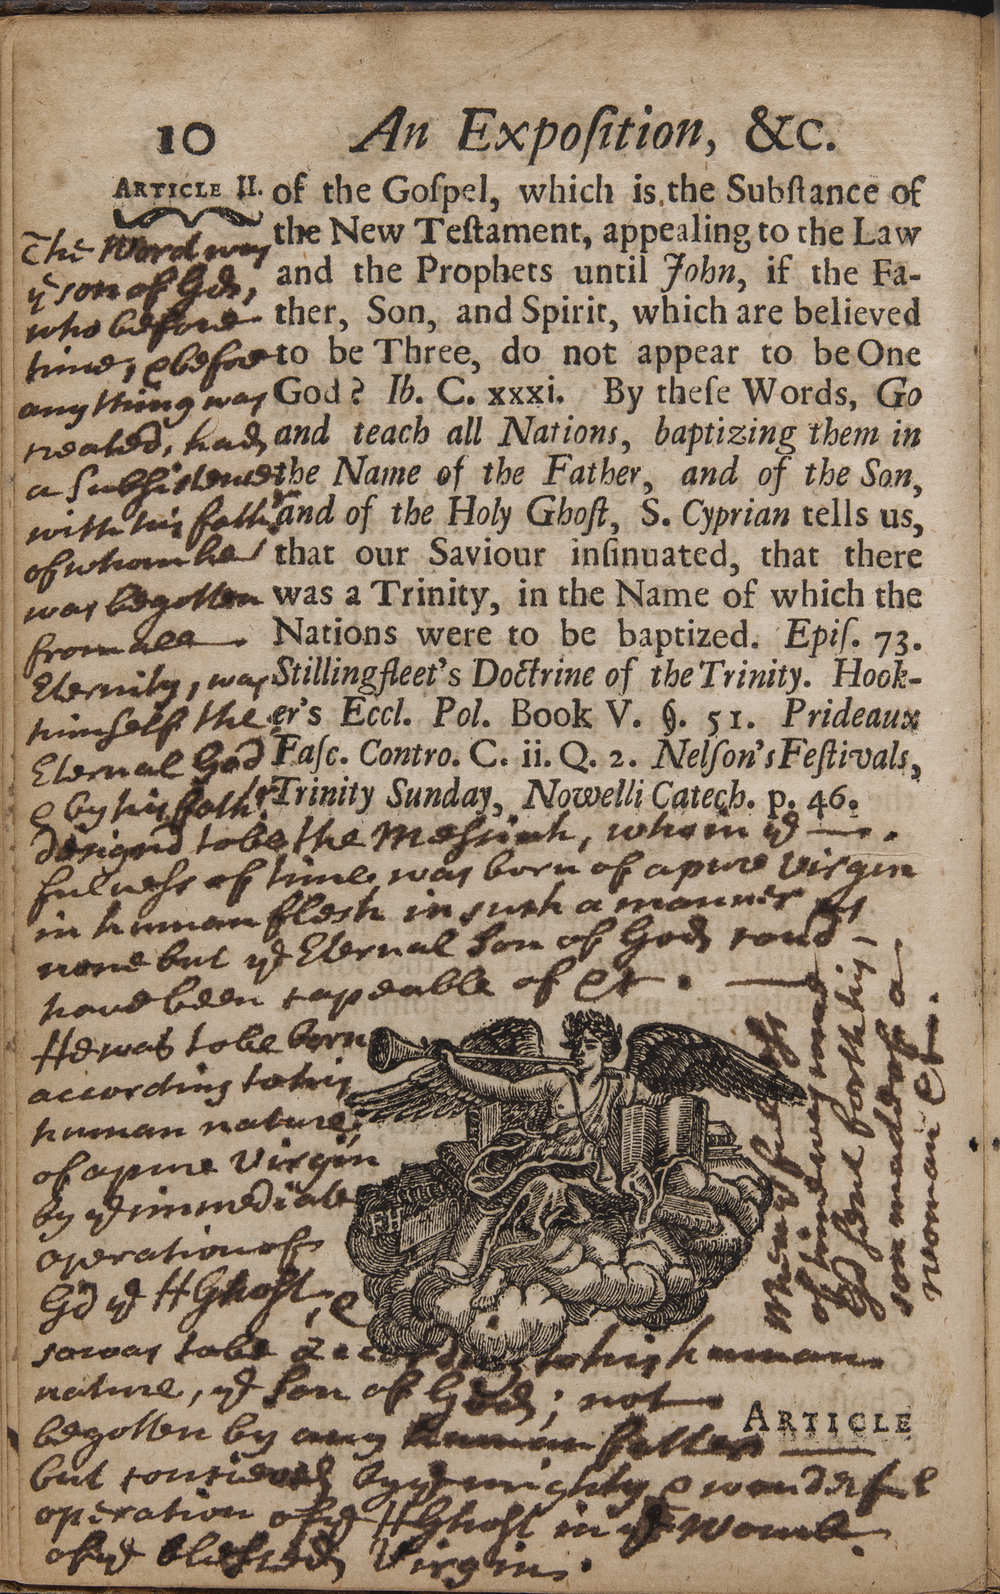 10 An Expoſition, &c.
ARTICLE II.
of the Goſpel, which is the Subſtance of
the New Teſtament, appealing to the Law
and the Prophets until John, if the Fa-
ther, Son, and Spirit, which are believed
to be Three, do not appear to be One
God? Ib. C. xxxi. By theſe Words, Go
and teach all Nations, baptizing them in
the Name of the Father, and of the Son,
and of the Holy Ghoſt, S. Cyprian tells us,
that our Saviour inſinuated, that there
was a Trinity, in the Name of which the
Nations were to be baptized. Epiſ. 73.
Stillingfleet's Doctrine of the Trinity. Hook-
er's Eccl. Pol. Book V. §. 51. Prideaux
Faſc. Contro. C. ii. Q. 2. Nelſon's Feſtivals,
Trinity Sunday, Nowelli Catech. p. 46.
The Word was
ye son of God,
who before
time, & before
any thing was
created, had
a Subsistence
with his father
of whom he
was begotten
from all
Eternity, was
himself the
Eternal God
& by his father
designd to be the Messiah, who in ye
fulness of time was born of a pure Virgin
in human flesh in such a manner as
none but ye Eternal Son of God coud
have been capeable of &c.
He was to be born
according to his
human nature,
of a pure Virgin
by ye immediate
operation of
God ye H Ghost, &
so was to be according to his human
nature, ye Son of God; not
begotten by any human father
but conceived by ye mighty & wonderful
operation of ye H Ghost in ye Womb
of ye blessed Virgin.
of time was
God sent forth his
son made of a
woman &c.
FH
ARTICLE